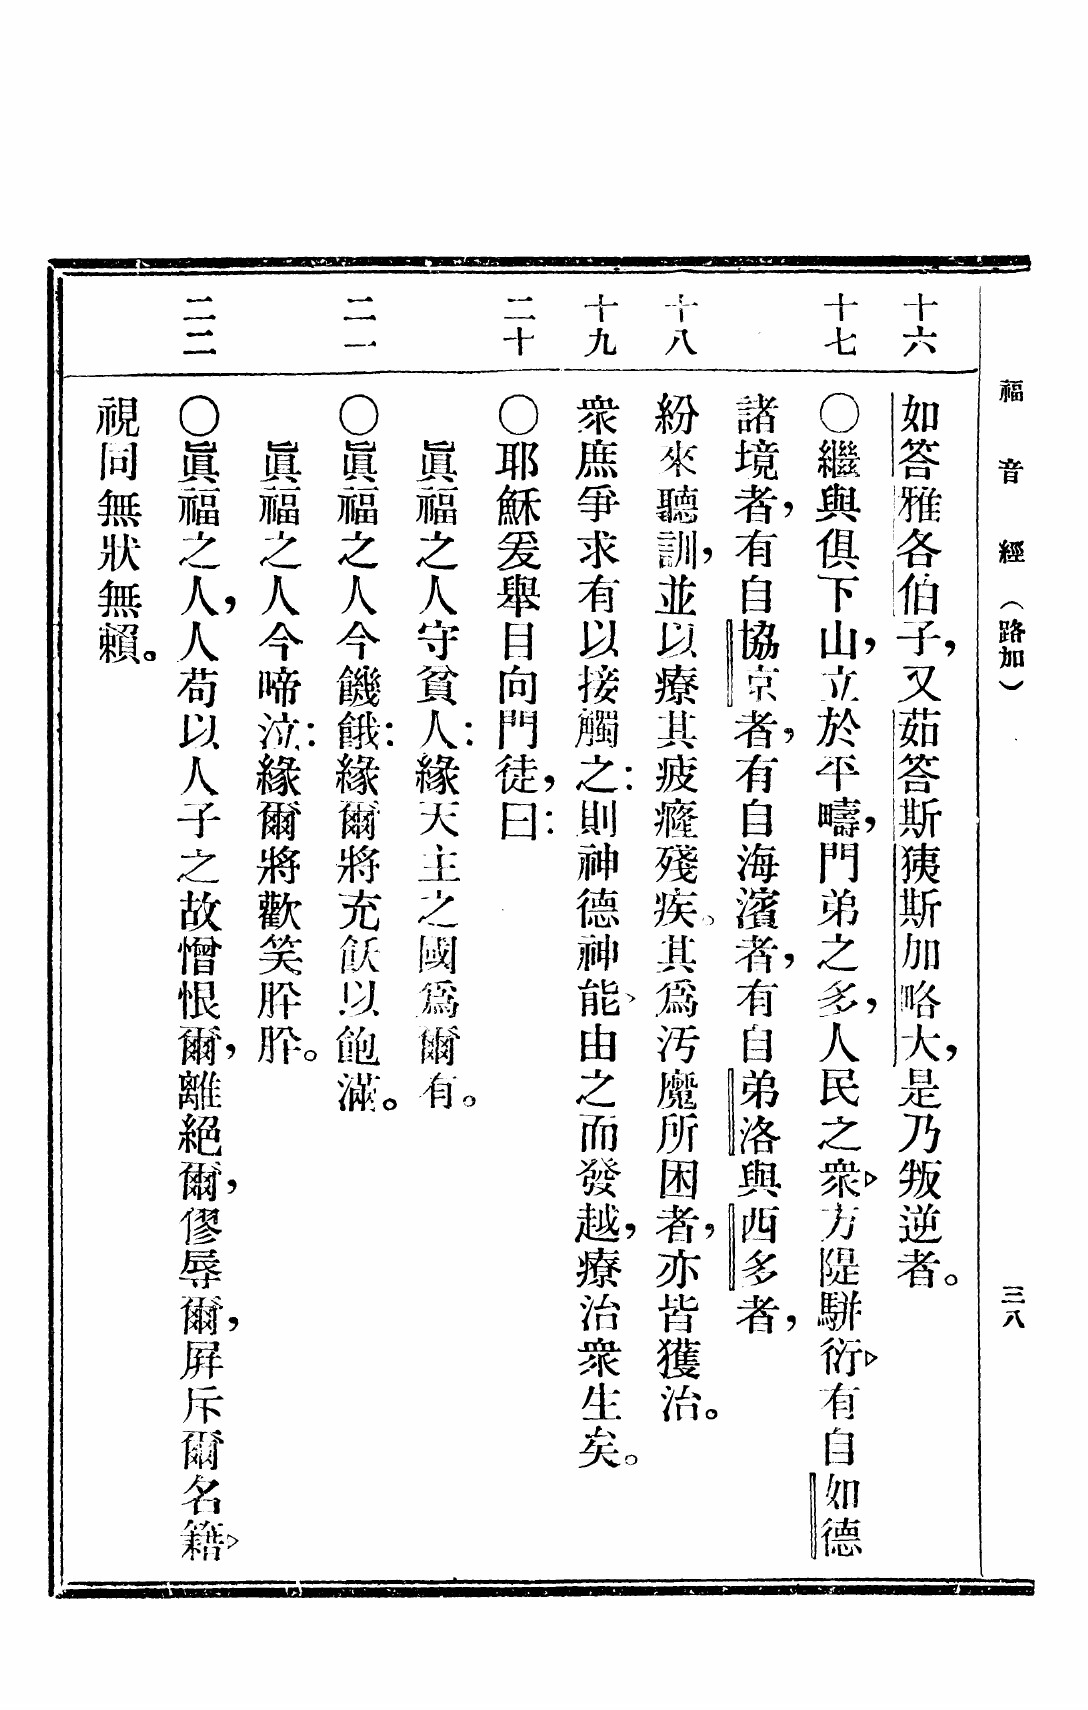 福音經（路加）
三八
十六
如答雅各伯子，又茹答斯狹斯加略大，是乃叛逆者。
十七
○繼與俱下山，立於平疇，門弟之多，人民之衆▷方隄駢衍▷有自如德
諸境者，有自協京者，有自海濱者，有自弟洛與西多者，
十八
紛來聽訓，並以療其疲癃殘疾。其爲汚魔所困者，亦皆獲治。
十九
衆庶爭求有以接觸之：則神德神能，由之而發越，療治衆生矣。
二十
○耶穌爰舉目向門徒，曰：
眞福之人守貧人：緣天主之國爲爾有。
二一
○眞福之人今饑餓：緣爾將充飫以飽滿。
眞福之人今啼泣：緣爾將歡笑肸肸。
二二
○眞福之人，人苟以人子之故憎恨爾，離絕爾，僇辱爾，屛斥爾名籍▷
視同無狀無賴。